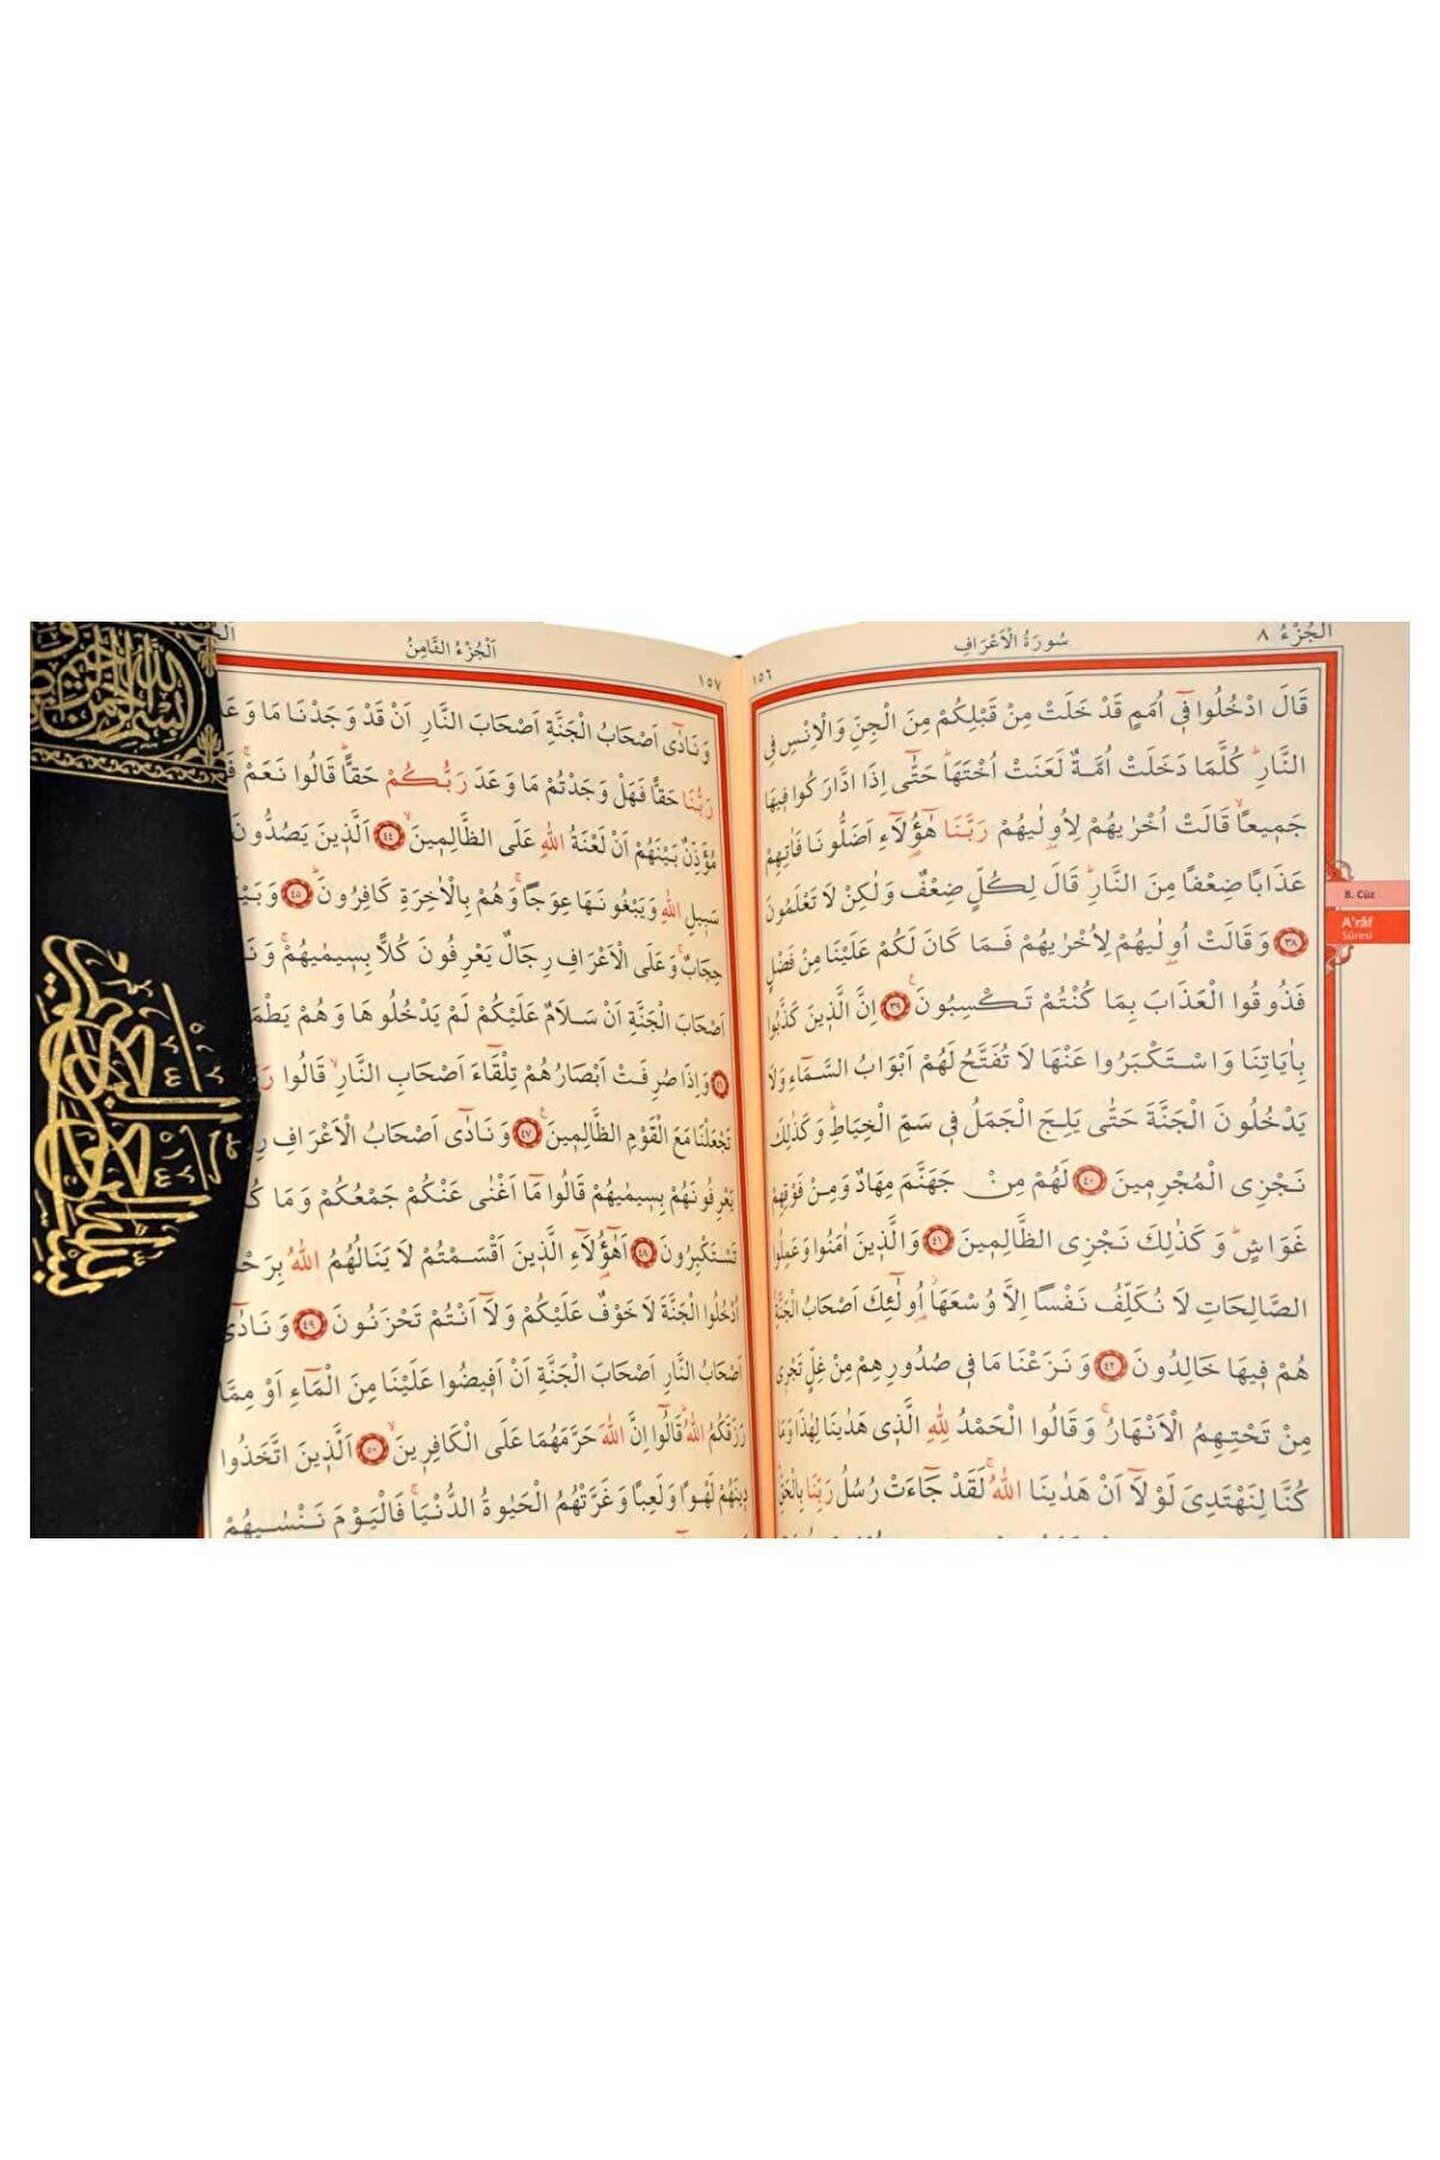 الجزء ٨
سورة الاعراف
١٥٦
قَالَ ادْخُلُوا فٖٓي اُمَمٍ قَدْ خَلَتْ مِنْ قَبْلِكُمْ مِنَ الْجِنِّ وَالْاِنْسِ فِي
النَّارِؕ كُلَّمَا دَخَلَتْ اُمَّةٌ لَعَنَتْ اُخْتَهَاؕ حَتّٰٓى اِذَا ادَّارَكُوا فٖيهَا
جَمٖيعاًۙ قَالَتْ اُخْرٰيهُمْ لِاُو۫لٰيهُمْ رَبَّنَا هٰٓؤُ۬لَٓاءِ اَضَلُّونَا فَاٰتِهِمْ
عَذَابًا ضِعْفًا مِنَ النَّارِؕ قَالَ لِكُلٍّ ضِعْفٌ وَلٰكِنْ لَا تَعْلَمُونَ
﴿٣٨﴾ وَقَالَتْ اُو۫لٰيهُمْ لِاُخْرٰيهُمْ فَمَا كَانَ لَكُمْ عَلَيْنَا مِنْ فَضْلٍ
فَذُوقُوا الْعَذَابَ بِمَا كُنْتُمْ تَكْسِبُونَࣖ ﴿٣٩﴾ اِنَّ الَّذٖينَ كَذَّبُوا
بِاٰيَاتِنَا وَاسْتَكْبَرُوا عَنْهَا لَا تُفَتَّحُ لَهُمْ اَبْوَابُ السَّمَٓاءِ وَلَا
يَدْخُلُونَ الْجَنَّةَ حَتّٰى يَلِجَ الْجَمَلُ فٖي سَمِّ الْخِيَاطِؕ وَكَذٰلِكَ
نَجْزِي الْمُجْرِمٖينَ ﴿٤٠﴾ لَهُمْ مِنْ جَهَنَّمَ مِهَادٌ وَمِنْ فَوْقِهِمْ
غَوَاشٍؕ وَكَذٰلِكَ نَجْزِي الظَّالِمٖينَ ﴿٤١﴾ وَالَّذٖينَ اٰمَنُوا وَعَمِلُوا
الصَّالِحَاتِ لَا نُكَلِّفُ نَفْسًا اِلَّا وُسْعَهَاؗ اُو۬لٰٓئِكَ اَصْحَابُ الْجَنَّةِۚ
هُمْ فٖيهَا خَالِدُونَ ﴿٤٢﴾ وَنَزَعْنَا مَا فٖي صُدُورِهِمْ مِنْ غِلٍّ تَجْرٖي
مِنْ تَحْتِهِمُ الْاَنْهَارُۚ وَقَالُوا الْحَمْدُ لِلّٰهِ الَّذٖي هَدٰينَا لِهٰذَا وَمَا
كُنَّا لِنَهْتَدِيَ لَوْلَٓا اَنْ هَدٰينَا اللّٰهُۚ لَقَدْ جَٓاءَتْ رُسُلُ رَبِّنَا بِالْحَقِّؕ
8. Cüz
A'râf
Sûresi
اَلْجُزْءُ الثَّامِنُ
١٥٧
وَنَادٰٓى اَصْحَابُ الْجَنَّةِ اَصْحَابَ النَّارِ اَنْ قَدْ وَجَدْنَا مَا وَعَ
رَبُّنَا حَقًّا فَهَلْ وَجَدْتُمْ مَا وَعَدَ رَبُّكُمْ حَقًّاؕ قَالُوا نَعَمْۚ فَ
مُؤَذِّنٌ بَيْنَهُمْ اَنْ لَعْنَةُ اللّٰهِ عَلَى الظَّالِمٖينَۙ ﴿٤٤﴾ اَلَّذٖينَ يَصُدُّونَ
سَبٖيلِ اللّٰهِ وَيَبْغُونَهَا عِوَجًاۚ وَهُمْ بِالْاٰخِرَةِ كَافِرُونَؕ ﴿٤٥﴾ وَبَيْ
حِجَابٌۚ وَعَلَى الْاَعْرَافِ رِجَالٌ يَعْرِفُونَ كُلًّا بِسٖيمٰيهُمْۚ وَنَ
اَصْحَابَ الْجَنَّةِ اَنْ سَلَامٌ عَلَيْكُمْ لَمْ يَدْخُلُوهَا وَهُمْ يَطْمَ
﴿٤٦﴾ وَاِذَا صُرِفَتْ اَبْصَارُهُمْ تِلْقَٓاءَ اَصْحَابِ النَّارِۙ قَالُوا رَ
تَجْعَلْنَا مَعَ الْقَوْمِ الظَّالِمٖينَࣖ ﴿٤٧﴾ وَنَادٰٓى اَصْحَابُ الْاَعْرَافِ رِ
يَعْرِفُونَهُمْ بِسٖيمٰيهُمْ قَالُوا مَٓا اَغْنٰى عَنْكُمْ جَمْعُكُمْ وَمَا كُ
تَسْتَكْبِرُونَ ﴿٤٨﴾ اَهٰٓؤُ۬لَٓاءِ الَّذٖينَ اَقْسَمْتُمْ لَا يَنَالُهُمُ اللّٰهُ بِرَحْ
اُدْخُلُوا الْجَنَّةَ لَا خَوْفٌ عَلَيْكُمْ وَلَٓا اَنْتُمْ تَحْزَنُونَ ﴿٤٩﴾ وَنَادٰٓى
اَصْحَابُ النَّارِ اَصْحَابَ الْجَنَّةِ اَنْ اَفٖيضُوا عَلَيْنَا مِنَ الْمَٓاءِ اَوْ مِمَّا
رَزَقَكُمُ اللّٰهُؕ قَالُٓوا اِنَّ اللّٰهَ حَرَّمَهُمَا عَلَى الْكَافِرٖينَۙ ﴿٥٠﴾ اَلَّذٖينَ اتَّخَذُوا
دٖينَهُمْ لَهْوًا وَلَعِبًا وَغَرَّتْهُمُ الْحَيٰوةُ الدُّنْيَاۚ فَالْيَوْمَ نَنْسٰيهُمْ